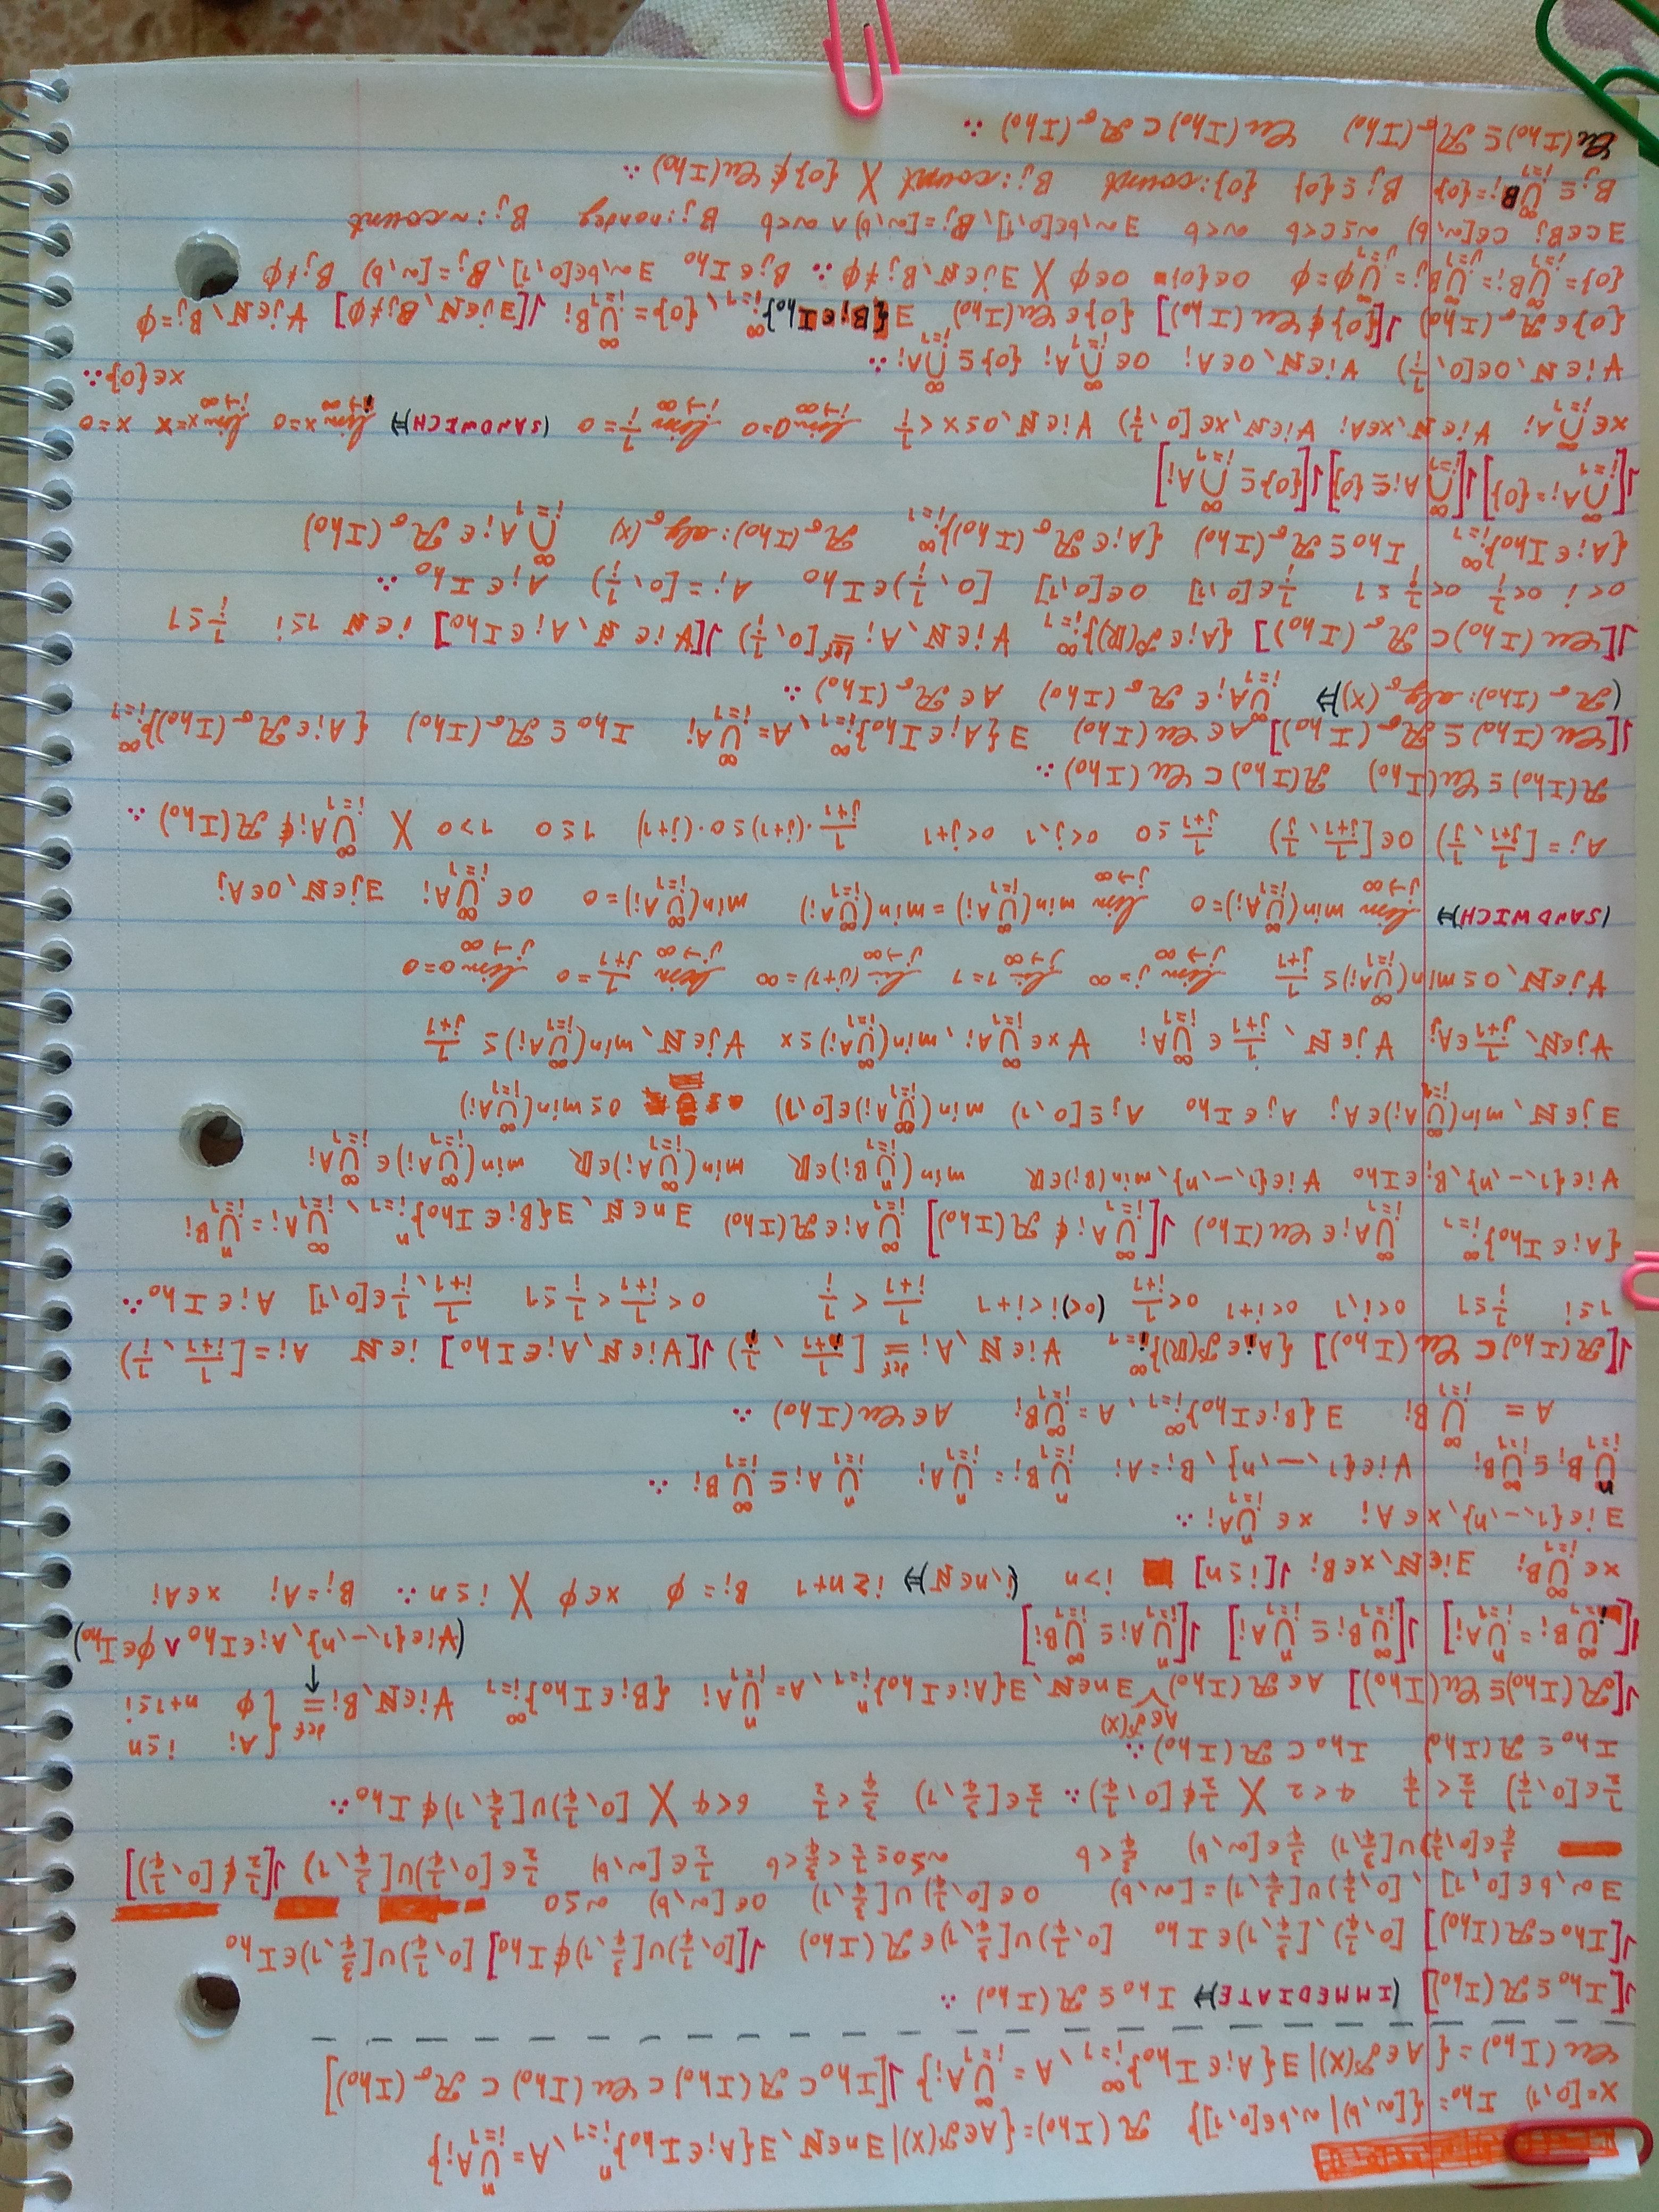 X=[0,1) I_ho={[a,b)|a,b∈[0,1]} R(I_ho)={A∈P(X)|∃n∈ℕ,∃{A_i∈I_ho}_{i=1}^n, A=⋃_{i=1}^n A_i}
Cu(I_ho)={A∈P(X)|∃{A_i∈I_ho}_{i=1}^∞, A=⋃_{i=1}^∞ A_i} 1[I_ho⊂R(I_ho)⊂Cu(I_ho)⊂R_σ(I_ho)]
1[I_ho⊆R(I_ho)] (IMMEDIATE)⇒ I_ho⊆R(I_ho) ∴
1[I_ho⊂R(I_ho)] [0,1/4),[3/4,1)∈I_ho [0,1/4)∪[3/4,1)∈R(I_ho) 1[[0,1/4)∪[3/4,1)∉I_ho] [0,1/4)∪[3/4,1)∈I_ho
∃a,b∈[0,1],[0,1/4)∪[3/4,1)=[a,b) 0∈[0,1/4)∪[3/4,1) 0∈[a,b) a≤0
3/4∈[0,1/4)∪[3/4,1) 3/4∈[a,b) 3/4<b a≤0≤1/2<3/4<b 1/2∈[a,b) 1/2∈[0,1/4)∪[3/4,1) 1[1/2∉[0,1/4)]
1/2∈[0,1/4) 1/2<1/4 4<2 X 1/2∉[0,1/4) ∴ 1/2∈[3/4,1) 3/4<1/2 6<4 X [0,1/4)∪[3/4,1)∉I_ho ∴
I_ho⊆R(I_ho) I_ho⊂R(I_ho) ∴
1[R(I_ho)⊆Cu(I_ho)] A∈R(I_ho) A∈P(X) ∃n∈ℕ,∃{A_i∈I_ho}_{i=1}^n, A=⋃_{i=1}^n A_i {B_i∈I_ho}_{i=1}^∞ ∀i∈ℕ, B_i =^{def} { A_i i≤n ; ∅ n+1≤i
(∀i∈{1,…,n}, A_i∈I_ho ∧ ∅∈I_ho)
1[⋃_{i=1}^∞ B_i=⋃_{i=1}^n A_i] 1[⋃_{i=1}^∞ B_i⊆⋃_{i=1}^n A_i] 1[⋃_{i=1}^n A_i⊆⋃_{i=1}^∞ B_i]
x∈⋃_{i=1}^∞ B_i ∃i∈ℕ, x∈B_i 1[i≤n] i>n (i,n∈ℕ)⇒ i≥n+1 B_i=∅ x∈∅ X i≤n ∴ B_i=A_i x∈A_i
∃i∈{1,…,n}, x∈A_i x∈⋃_{i=1}^n A_i ∴
⋃_{i=1}^n B_i⊆⋃_{i=1}^∞ B_i ∀i∈{1,…,n}, B_i=A_i ⋃_{i=1}^n B_i=⋃_{i=1}^n A_i ⋃_{i=1}^n A_i⊆⋃_{i=1}^∞ B_i ∴
A=⋃_{i=1}^∞ B_i ∃{B_i∈I_ho}_{i=1}^∞, A=⋃_{i=1}^∞ B_i A∈Cu(I_ho) ∴
1[R(I_ho)⊂Cu(I_ho)] {A_i∈P(ℝ)}_{i=1}^∞ ∀i∈ℕ, A_i =^{def} [1/(i+1), 1/i) 1[∀i∈ℕ, A_i∈I_ho] i∈ℕ A_i=[1/(i+1), 1/i)
1≤i 1/i≤1 0<i,1 0<i+1 0<1/(i+1) (0<)i<i+1 1/(i+1)<1/i 0<1/(i+1)<1/i≤1 1/(i+1),1/i∈[0,1] A_i∈I_ho ∴
{A_i∈I_ho}_{i=1}^∞ ⋃_{i=1}^∞ A_i∈Cu(I_ho) 1[⋃_{i=1}^∞ A_i∉R(I_ho)] ⋃_{i=1}^∞ A_i∈R(I_ho) ∃n∈ℕ,∃{B_i∈I_ho}_{i=1}^n, ⋃_{i=1}^∞ A_i=⋃_{i=1}^n B_i
∀i∈{1,…,n}, B_i∈I_ho ∀i∈{1,…,n}, min(B_i)∈ℝ min(⋃_{i=1}^n B_i)∈ℝ min(⋃_{i=1}^∞ A_i)∈ℝ min(⋃_{i=1}^∞ A_i)∈⋃_{i=1}^∞ A_i
∃j∈ℕ, min(⋃_{i=1}^∞ A_i)∈A_j A_j∈I_ho A_j⊆[0,1) min(⋃_{i=1}^∞ A_i)∈[0,1) 0≤min(⋃_{i=1}^∞ A_i)
∀j∈ℕ, 1/(j+1)∈A_j ∀j∈ℕ, 1/(j+1)∈⋃_{i=1}^∞ A_i ∀x∈⋃_{i=1}^∞ A_i, min(⋃_{i=1}^∞ A_i)≤x ∀j∈ℕ, min(⋃_{i=1}^∞ A_i)≤1/(j+1)
∀j∈ℕ, 0≤min(⋃_{i=1}^∞ A_i)≤1/(j+1) lim_{j→∞} j=∞ lim_{j→∞} 1=1 lim_{j→∞} (j+1)=∞ lim_{j→∞} 1/(j+1)=0 lim_{j→∞} 0=0
(SANDWICH)⇒ lim_{j→∞} min(⋃_{i=1}^∞ A_i)=0 lim_{j→∞} min(⋃_{i=1}^∞ A_i)=min(⋃_{i=1}^∞ A_i) min(⋃_{i=1}^∞ A_i)=0 0∈⋃_{i=1}^∞ A_i ∃j∈ℕ, 0∈A_j
A_j=[1/(j+1), 1/j) 0∈[1/(j+1), 1/j) 1/(j+1)≤0 0<j,1 0<j+1 1/(j+1)·(j+1)≤0·(j+1) 1≤0 1>0 X ⋃_{i=1}^∞ A_i∉R(I_ho) ∴
R(I_ho)⊆Cu(I_ho) R(I_ho)⊂Cu(I_ho) ∴
1[Cu(I_ho)⊆R_σ(I_ho)] A∈Cu(I_ho) ∃{A_i∈I_ho}_{i=1}^∞, A=⋃_{i=1}^∞ A_i I_ho⊆R_σ(I_ho) {A_i∈R_σ(I_ho)}_{i=1}^∞
(R_σ(I_ho):alg_σ(X))⇒ ⋃_{i=1}^∞ A_i∈R_σ(I_ho) A∈R_σ(I_ho) ∴
1[Cu(I_ho)⊂R_σ(I_ho)] {A_i∈P(ℝ)}_{i=1}^∞ ∀i∈ℕ, A_i =^{def} [0,1/i) 1[∀i∈ℕ, A_i∈I_ho] i∈ℕ 1≤i 1/i≤1
0<i 0<1/i 0<1/i≤1 1/i∈[0,1] 0∈[0,1] [0,1/i)∈I_ho A_i=[0,1/i) A_i∈I_ho ∴
{A_i∈I_ho}_{i=1}^∞ I_ho⊆R_σ(I_ho) {A_i∈R_σ(I_ho)}_{i=1}^∞ R_σ(I_ho):alg_σ(X) ⋂_{i=1}^∞ A_i∈R_σ(I_ho)
1[⋂_{i=1}^∞ A_i={0}] 1[⋂_{i=1}^∞ A_i⊆{0}] 1[{0}⊆⋂_{i=1}^∞ A_i]
x∈⋂_{i=1}^∞ A_i ∀i∈ℕ, x∈A_i ∀i∈ℕ, x∈[0,1/i) ∀i∈ℕ, 0≤x<1/i lim_{i→∞} 0=0 lim_{i→∞} 1/i=0 (SANDWICH)⇒ lim_{i→∞} x=0 lim_{i→∞} x=x x=0
x∈{0} ∴
∀i∈ℕ, 0∈[0,1/i) ∀i∈ℕ, 0∈A_i 0∈⋂_{i=1}^∞ A_i {0}⊆⋂_{i=1}^∞ A_i ∴
{0}∈R_σ(I_ho) 1[{0}∉Cu(I_ho)] {0}∈Cu(I_ho) ∃{B_i∈I_ho}_{i=1}^∞, {0}=⋃_{i=1}^∞ B_i 1[∃j∈ℕ, B_j≠∅] ∀j∈ℕ, B_j=∅
{0}=⋃_{i=1}^∞ B_i=⋃_{j=1}^∞ B_j=⋃_{j=1}^∞ ∅=∅ 0∈{0} 0∈∅ X ∃j∈ℕ, B_j≠∅ ∴ B_j∈I_ho ∃a,b∈[0,1], B_j=[a,b) B_j≠∅
∃c∈B_j c∈[a,b) a≤c<b a<b ∃a,b∈[0,1], B_j=[a,b) ∧ a<b B_j:nondeg B_j:~count
B_j⊆⋃_{i=1}^∞ B_i={0} B_j⊆{0} {0}:count B_j:count X {0}∉Cu(I_ho) ∴
Cu(I_ho)⊆R_σ(I_ho) Cu(I_ho)⊂R_σ(I_ho) ∴